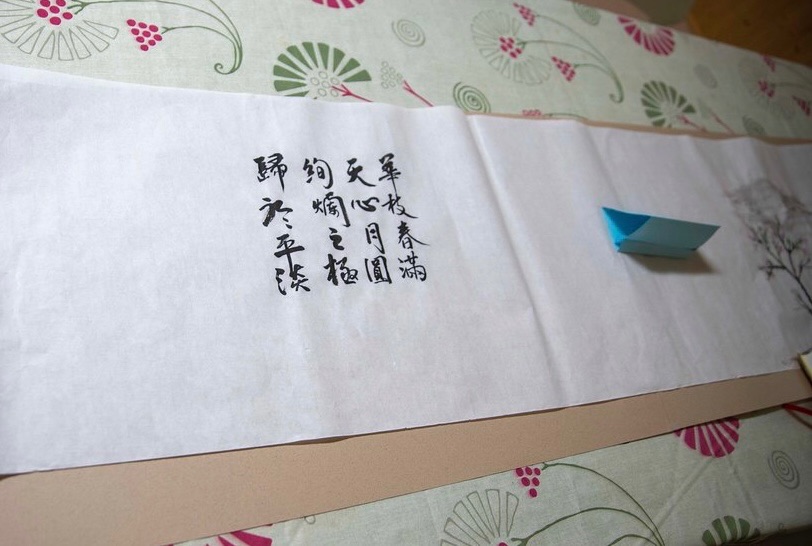 華枝春滿
天心月圓
絢爛之極
歸於平淡